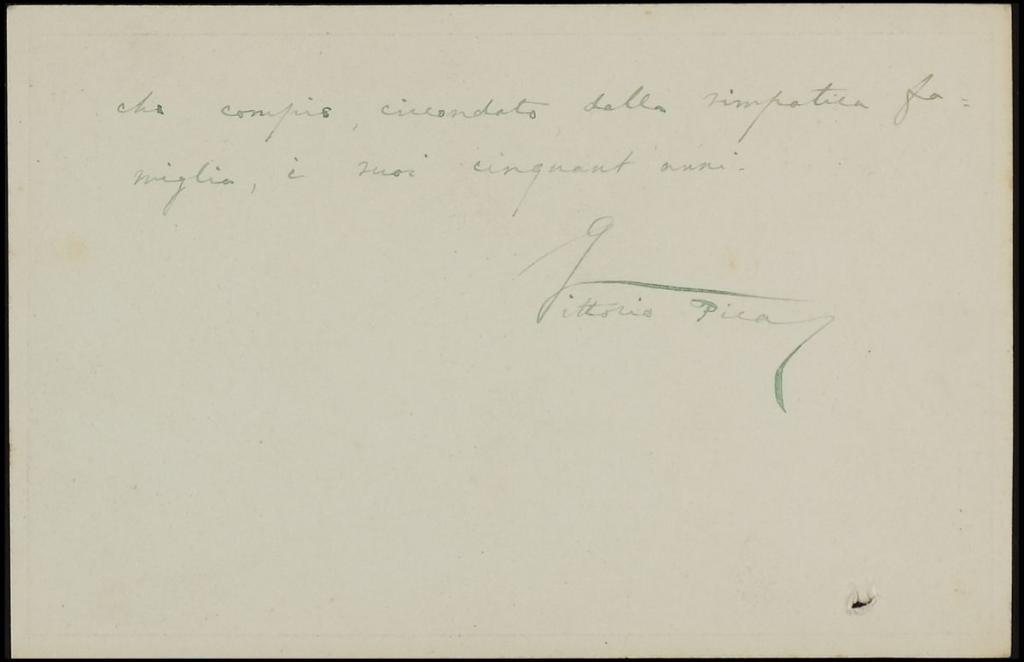 che compie, circondato dalla simpatica fa=
miglia, i suoi cinquant'anni.
Vittorio Pica